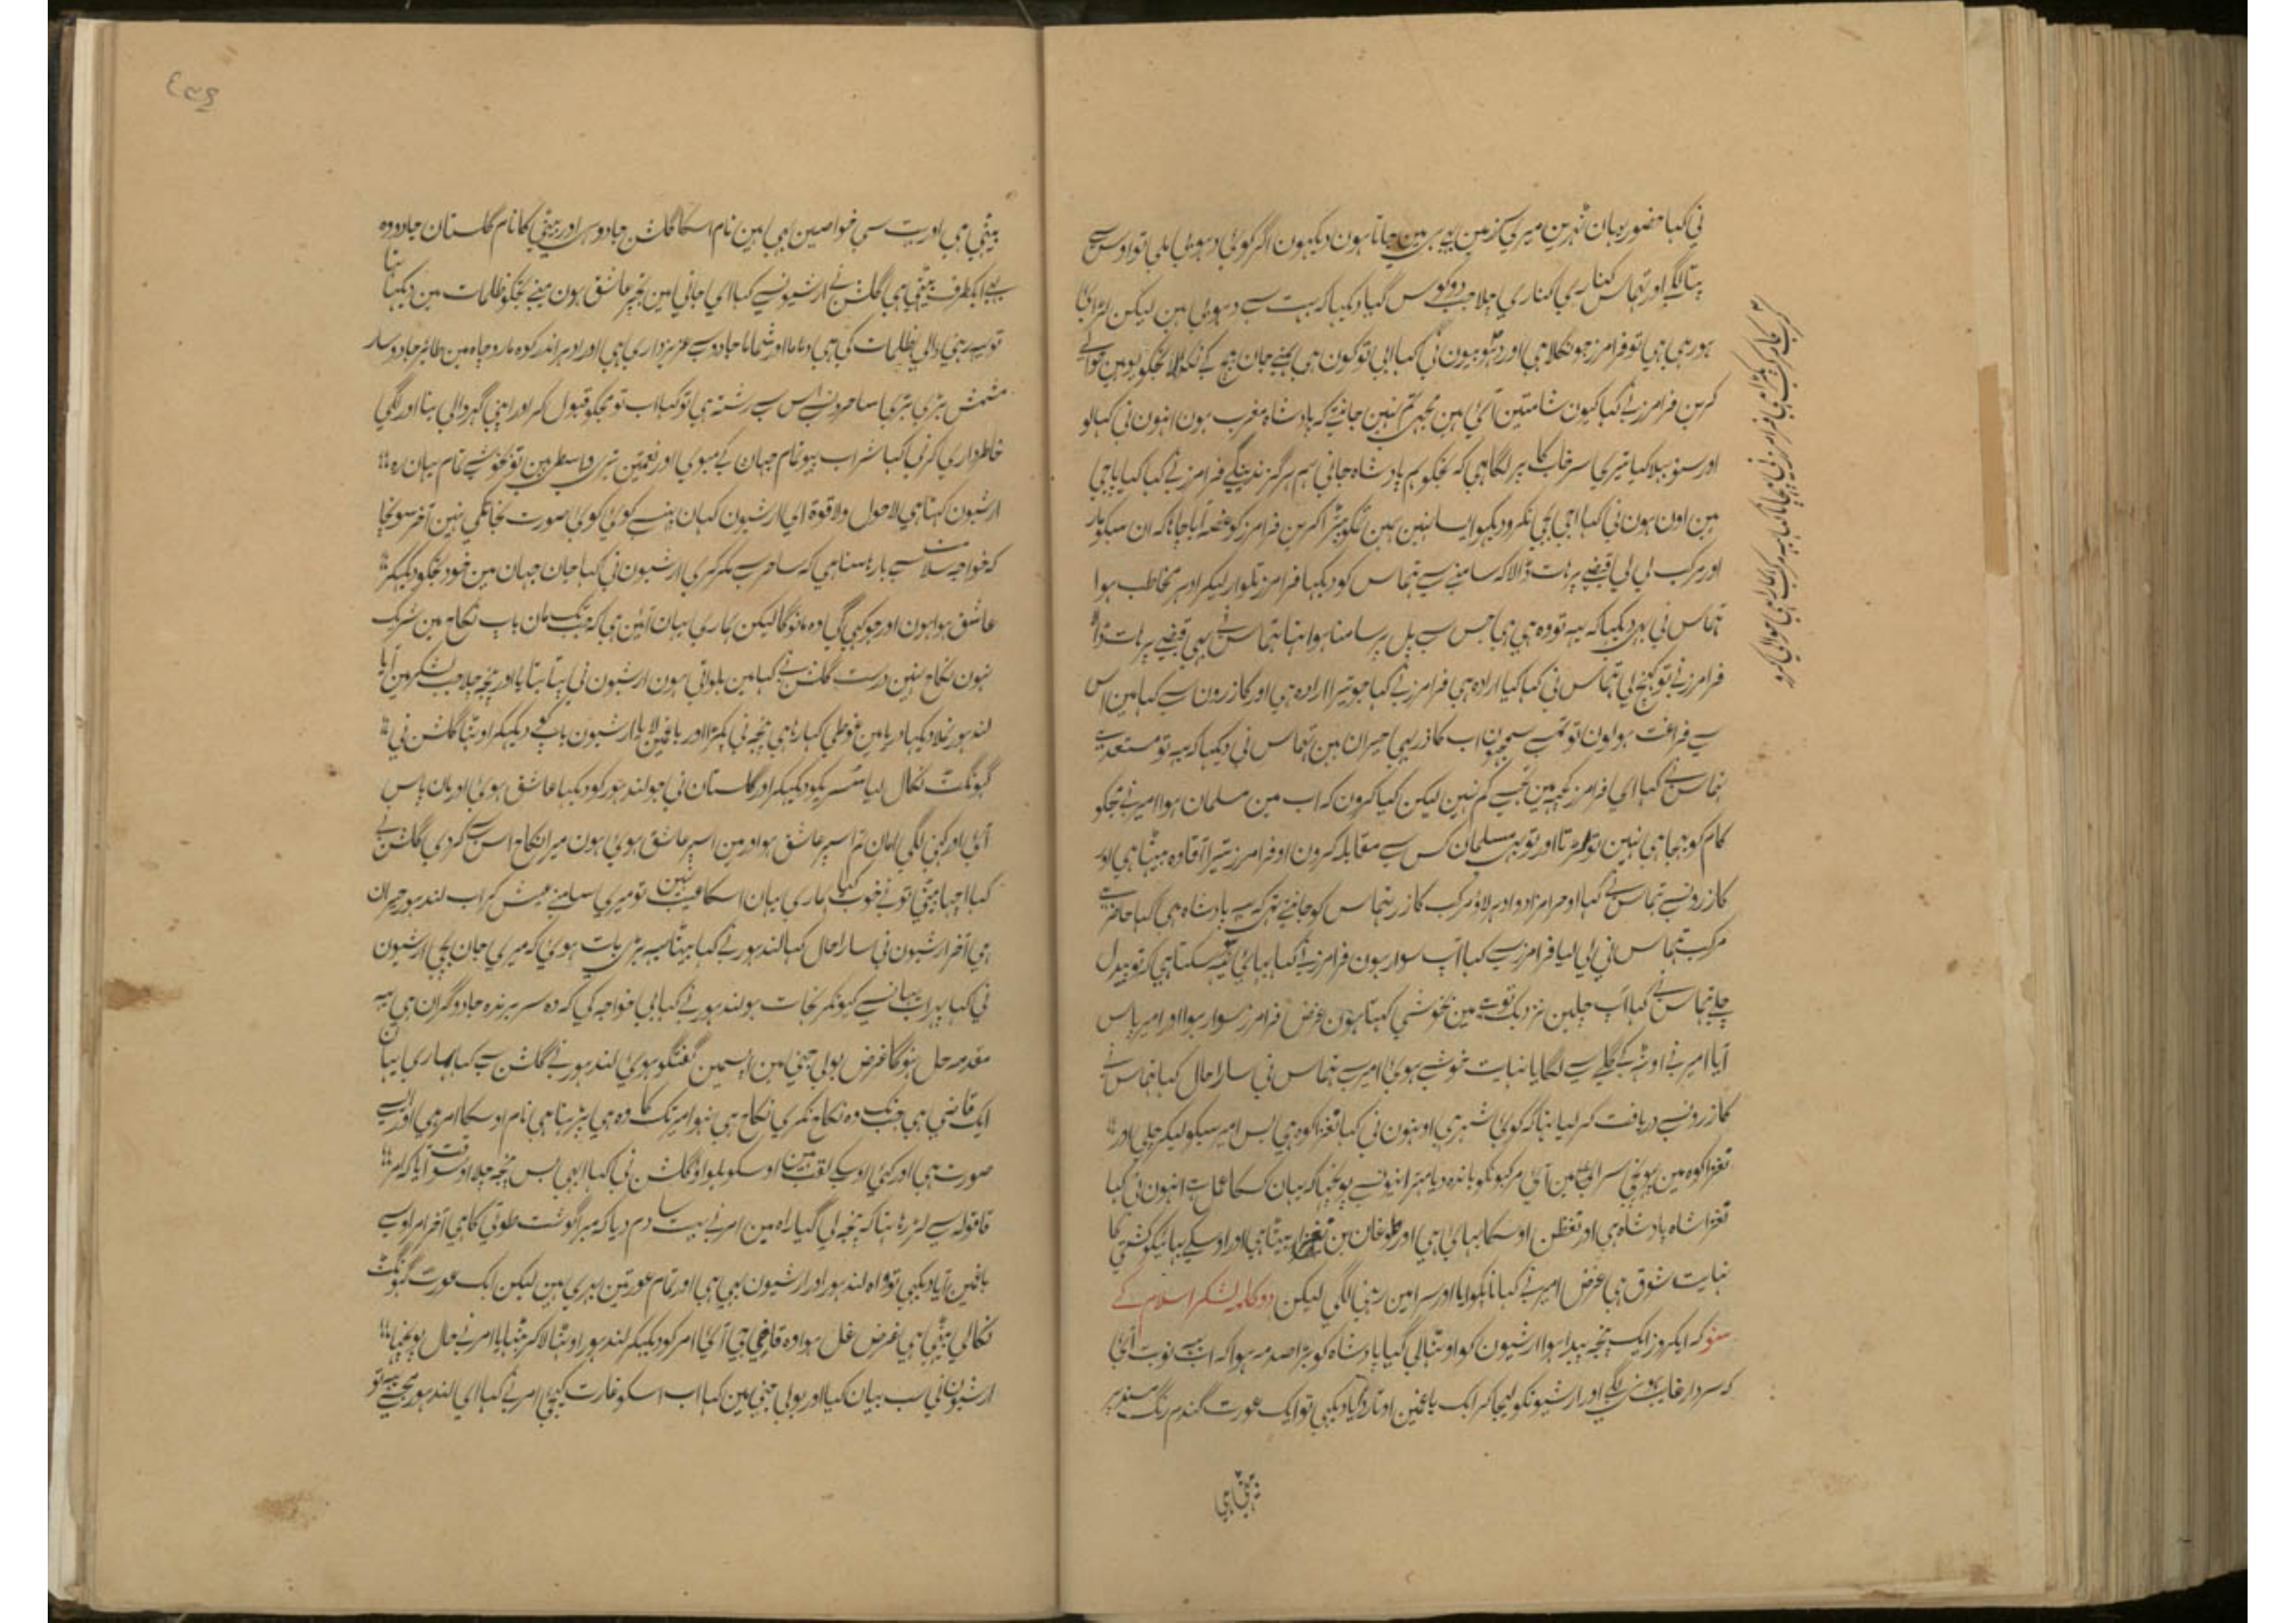 نی کہا حضور یہان ٹہرین میری گز زمین پہ ہی مین جاتا ہون دیکہون اگر کوئی دہوبی ملی تو اوس سے
پتا لگی اور تہماس کناری کناری چلا جب دو کوس گیا دیکہا کہ بہت سے دہوبی ہین لیکن لڑائی
ہو رہی ہی تو فرامرز جو نکلا ہی اور دہوبیون نی کہا ابی تو کون ہی
کرین فرامرز نے کہا کیون شامتین آئی ہین مجہی تم نہین جانتے کہ بادشاہ مغرب ہون انہون نی کہا لو
اور سنو بہلا کیا تیری سرخاب کا پر لگا ہی کہ تجکو ہم بادشاہ جانی ہم ہرگز ندینگے فرامرز نے کہا کیا پاجی
ہین اون ہون نی کہا اجی پاجی نکرو دیکہو ایسا نہین ہمین تمکو فرامرز کو غصہ آیا چاہا کہ ان سبکو مار
اور مرکب لی لی قبضے پر ہات ڈالا کہ سامنے سے تہماس کو دیکہا فرامرز تلوار لیکر ادہر مخاطب ہوا
تہماس نی بہی دیکہا کہ یہ تو وہ ہی ہی جس سے پل پر سامنا ہوا تہا تہماس نے بہی قبضے پر ہات ڈالا
فرامرز نے تو کہینچ لی تہماس نی کہا کیا ارادہ ہی فرامرز نے کہا جو تیرا ارادہ ہی اور کازرون سے کہا مین اس
سے فراغت ہو لون تو تمسے سمجہون اب کازر بہی حیران ہین تہماس نی دیکہا کہ یہ تو مستعد ہے
تہماس نے کہا ای فرامرز کچہہ مین تجسے کم نہین لیکن کیا کرون کہ اب مین مسلمان ہوا امیر نے مجکو
کام کو بہیجا ہی نہین تو لڑتا اور تو بہی مسلمان کس سے مقابلہ کرون او فرامرز تیرا آقا وہ بیٹہا ہی اور
کازرونسے تہماس نے کہا او حرامزادو ادہر لاؤ مرکب کازر تہماس کو جانتے تہی کہ یہ بادشاہ ہی کہا حاضر ہے
مرکب تہماس نی لی لیا فرامرز سے کہا آپ سوار ہون فرامرز نے کہا بہائی یہہ ہو سکتا ہی کہ تو پیدل
چلے تہماس نے کہا آپ چلین نزدیک تو ہے مین بخوشی کہتا ہون غرض فرامرز سوار ہوا اور امیر پاس
آیا امیر نے اوٹہہ کے گلے سے لگایا نہایت خوشی ہوئی امیر سے تہماس نی سارا حال کہا تہماس نے
کازرونسے دریافت کر لیا تہا کہ کوئی شہر ہی اونہون نی کہا تغزا کوہ ہی بس امیر سبکو لیکر چلی اور
تغزا کوہ مین پہونچی سرائے مین آئی مرکبونکو باندہ دیا مہترانیونسے پوچہا کہ یہان کسکا عمل ہے انہون نی کہا
تغزا شاہ بادشاہ ہی اور تغظن اوسکا بہائی ہی اور طوغان بن تغزا بیٹا ہی اور اوسکے بہائیکو کشتی کا
نہایت شوق ہی غرض امیر نے کہانا پکوایا اور سرا مین رہنی لگی لیکن دو کلمہ لشکر اسلام کے
سنو کہ ایکروز ایک پنجہ پیدا ہوا ارشیون کو اوٹہا لی گیا بادشاہ کو بڑا صدمہ ہوا کہ اب یہ نوبت آئی
کہ سردار غایب ہونے لگے اور ارشیونکو لیجا کر ایک باغمین اوتار دیا دیکہی تو ایک عورت گندم رنگ مسند پر
بیٹہی ہی
بیٹہی ہی اور بہت سی خواصین ہی ہین نام اسکا گلشن جادو ہی اور بیٹی کا نام گلستان جادو وہ
بہی ایکطرف بیٹہی ہی گلشن نے ارشیونسے کہا ای جانی مین تجپر عاشق ہون مینے تجکو ظلمات مین دیکہا تہا
تو یہ رہنی والی ظلمات کی ہی اور شمانا جادو سے عزیزداری ہی
مشمش بڑی بڑی ساحرونسے اس سے رشتہ ہی تو کہا اب تو مجکو قبول کر اور اپنی گہر والی بنا اور لگی
خاطرداری کرنی کہا شراب پیو تمام جہان کے میوی اور نعمتین تیری واسطے ہین تو بخوشی تمام یہان رہ
ارشیون کہتا ہی لاحول ولا قوة ای ارشیون کہان پہنسے کوئی کوئی صورت نجاتکی نہین آخر سونچا
کہ خواجہ سلامت سے بارہا سنا ہی کہ ساحر سے مکر کری ارشیون نی کہا جان جہان مین خود تجکو دیکہکر
عاشق ہوا ہون اور جو کہی گی وہ مانونگا لیکن ہماری یہان آئین ہی کہ جب تک مان باپ نکاح مین شریک
نہون نکاح نہین درست گلشن نے کہا مین بلواتی ہون ارشیون نی پتا بتایا اور پنجہ چلا جب لشکر مین آیا
لندہور نہلا دیکہا دریا مین غوطی کہا رہا ہی پنجہ نی پکڑا اور باغمین لایا ارشیون باپ کو دیکہکر اوٹہا گلشن نی
گہونگٹ نکال لیا سسریکو دیکہکر اور گلستان نی جو لندہور کو دیکہا عاشق ہوئی اور مان پاس
آئی اور کہنی لگی امان تم اسپر عاشق ہو اور مین اسپر عاشق ہوئی ہون میرا نکاح اس سے کر دی گلشن نے
کہا اچہا بیٹی تو نے خوب کہا ہماری یہان اسکا عیب نہین تو میری سامنے عیش کر اب لندہور حیران
ہی آخر ارشیون نی سارا حال کہا لندہور نے کہا بیٹا یہ بڑی بات ہوئی کہ میری جان بچی ارشیون
نی کہا پہر اب یہانسے کیونکر نجات ہو لندہور نے کہا بی خواجہ کی کہ وہ سربرندہ جادوگران ہی یہ
مقدمہ حل نہوگا غرض بولی جنی مین اسمین گفتگو ہوئی لندہور نے گلشن سے کہا ہماری یہان
ایک قاضی ہی جب تک وہ نکاح نکری نکاح ہی نہو امیر تک کا وہ ہی پڑہتا ہی نام اوسکا امر ہی اور ایسی
صورت ہی اور کئی اوسکے لقب ہین اوسکو بلواؤ گلشن نی کہا ابہی بس پنجہ چلا اوسوقت آیا کہ امر
قاقولہ سے لڑ رہا تہا کہ پنجہ لی گیا راہ مین امر نے بہت سا دم دیا کہ میرا گوشت طوئی کا ہی آخر امر اوسے
باغمین آیا دیکہی تو واہ لندہور اور ارشیون بہی ہی اور تمام عورتین بہری ہین لیکن ایک عورت گہونگٹ
نکالی بیٹہی ہی غرض غل ہوا وہ قاضی جی آئی امر کو دیکہکر لندہور اوٹہا لا کر بٹہایا امر نے حال پوچہا
ارشیون نی سب بیان کیا اور بولی جنی مین کہا اب اسکو غارت کیجئی امر نے کہا ای لندہور مجسے یہ تو